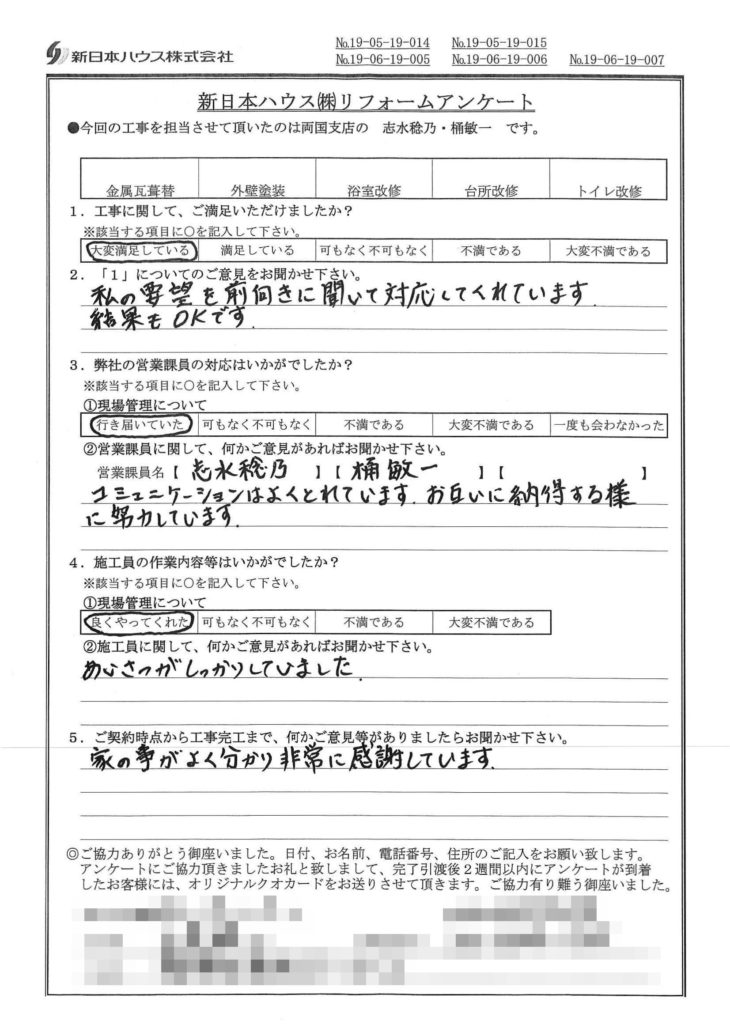 新日本ハウス株式会社
№19-05-19-014 №19-05-19-015
№19-06-19-005 №19-06-19-006 №19-06-19-007
新日本ハウス㈱リフォームアンケート
●今回の工事を担当させて頂いたのは両国支店の 志水稔乃・桶敏一 です。
金属瓦葺替 外壁塗装 浴室改修 台所改修 トイレ改修
1．工事に関して、ご満足いただけましたか？
※該当する項目に○を記入して下さい。
大変満足している 満足している 可もなく不可もなく 不満である 大変不満である
2．「1」についてのご意見をお聞かせ下さい。
私の要望を前向きに聞いて対応してくれています.
結果もOKです.
3．弊社の営業課員の対応はいかがでしたか？
※該当する項目に○を記入して下さい。
①現場管理について
行き届いていた 可もなく不可もなく 不満である 大変不満である 一度も会わなかった
②営業課員に関して、何かご意見があればお聞かせ下さい。
営業課員名【 志水稔乃 】【 桶敏一 】【 】
コミュニケーションはよくとれています.お互いに納得する様
に努力しています.
4．施工員の作業内容等はいかがでしたか？
※該当する項目に○を記入して下さい。
①現場管理について
良くやってくれた 可もなく不可もなく 不満である 大変不満である
②施工員に関して、何かご意見があればお聞かせ下さい。
あいさつがしっかりしていました.
5．ご契約時点から工事完工まで、何かご意見等がありましたらお聞かせ下さい。
家の事がよく分かり非常に感謝しています.
◎ご協力ありがとう御座いました。日付、お名前、電話番号、住所のご記入をお願い致します。
アンケートにご協力頂きましたお礼と致しまして、完了引渡後２週間以内にアンケートが到着
したお客様には、オリジナルクオカードをお送りさせて頂きます。ご協力有り難う御座いました。